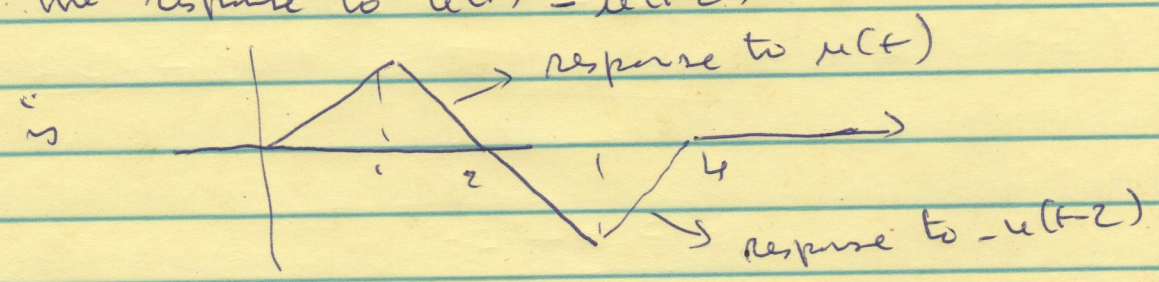 the response to u(t) - u(t-2)
response to u(t)
is
1 2 4
response to -u(t-2)